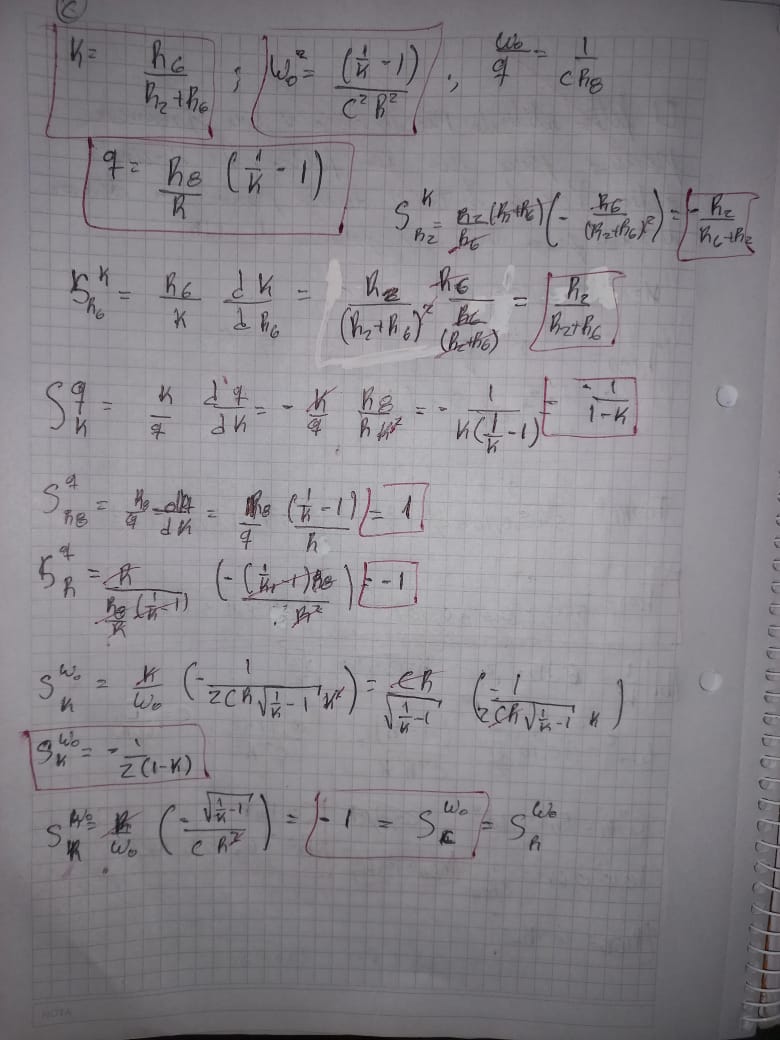 c
K = R6/(R2+R6) ; ω0² = (1/K - 1)/(C² R²) ; ω0/q = 1/(CR8)
q = R8/R (1/K - 1)
S^K_R2 = R2(R2+R6)/R6 (- R6/(R2+R6)²) = - R2/(R6+R2)
S^K_R6 = R6/K dK/dR6 = R2/(R2+R6)² R6/(R6/(R2+R6)) = R2/(R2+R6)
S^q_K = K/q dq/dK = - K/q R8/(R K²) = - 1/(K(1/K - 1)) = - 1/(1-K)
S^q_R8 = R8/q dq/dK = R8/q (1/K - 1)/R = 1
S^q_R = R/(R8/R (1/K - 1)) (- (1/K - 1)R8/R²) = -1
S^ω0_K = K/ω0 (- 1/(2CR√(1/K - 1) K²)) = CR/√(1/K - 1) (- 1/(2CR√(1/K - 1) K))
S^ω0_K = - 1/(2(1-K))
S^ω0_R = R/ω0 (- √(1/K - 1)/(C R²)) = -1 = S^ω0_C = S^ω0_R
NOTA